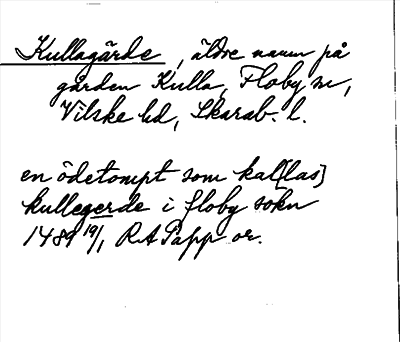 Kullagärde, äldre namn på
gården Kulla, Floby sn,
Vilske hd, Skarab. l.
en ödetompt som kal[las]
kullegerde i floby sokn
1489 19/1 RA Papp or.